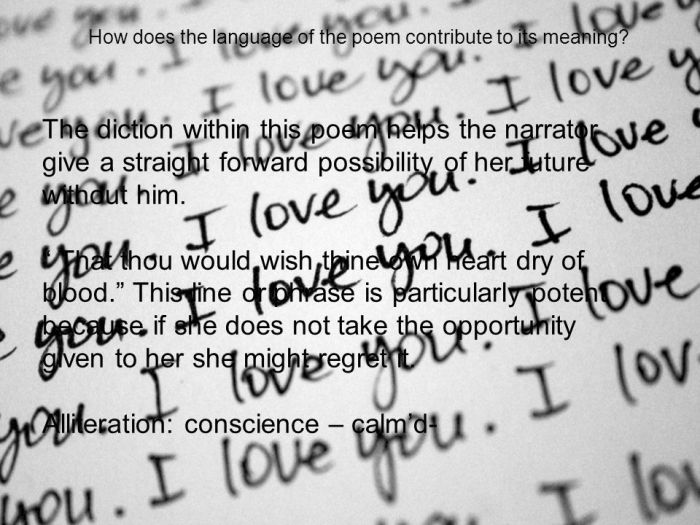 How does the language of the poem contribute to its meaning?
The diction within this poem helps the narrator
give a straight forward possibility of her future
without him.
“ That thou would wish thine own heart dry of
blood.” This line or phrase is particularly potent
because if she does not take the opportunity
given to her she might regret it.
Alliteration: conscience – calm’d-
you. I love you. I love
you. I love you. I love
you. I love you. I love
you. I love you. I
you. I love you. I